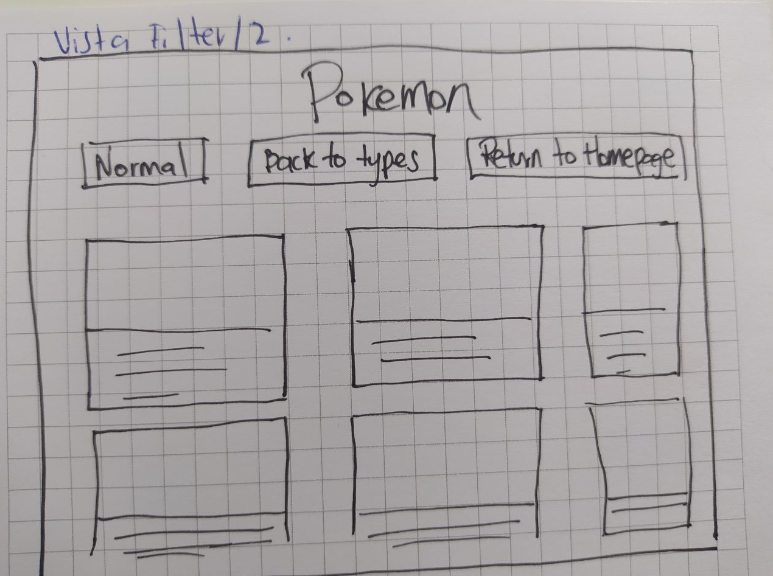 Vista Filter/2.
Pokemon
Normal
Back to types
Return to Homepage